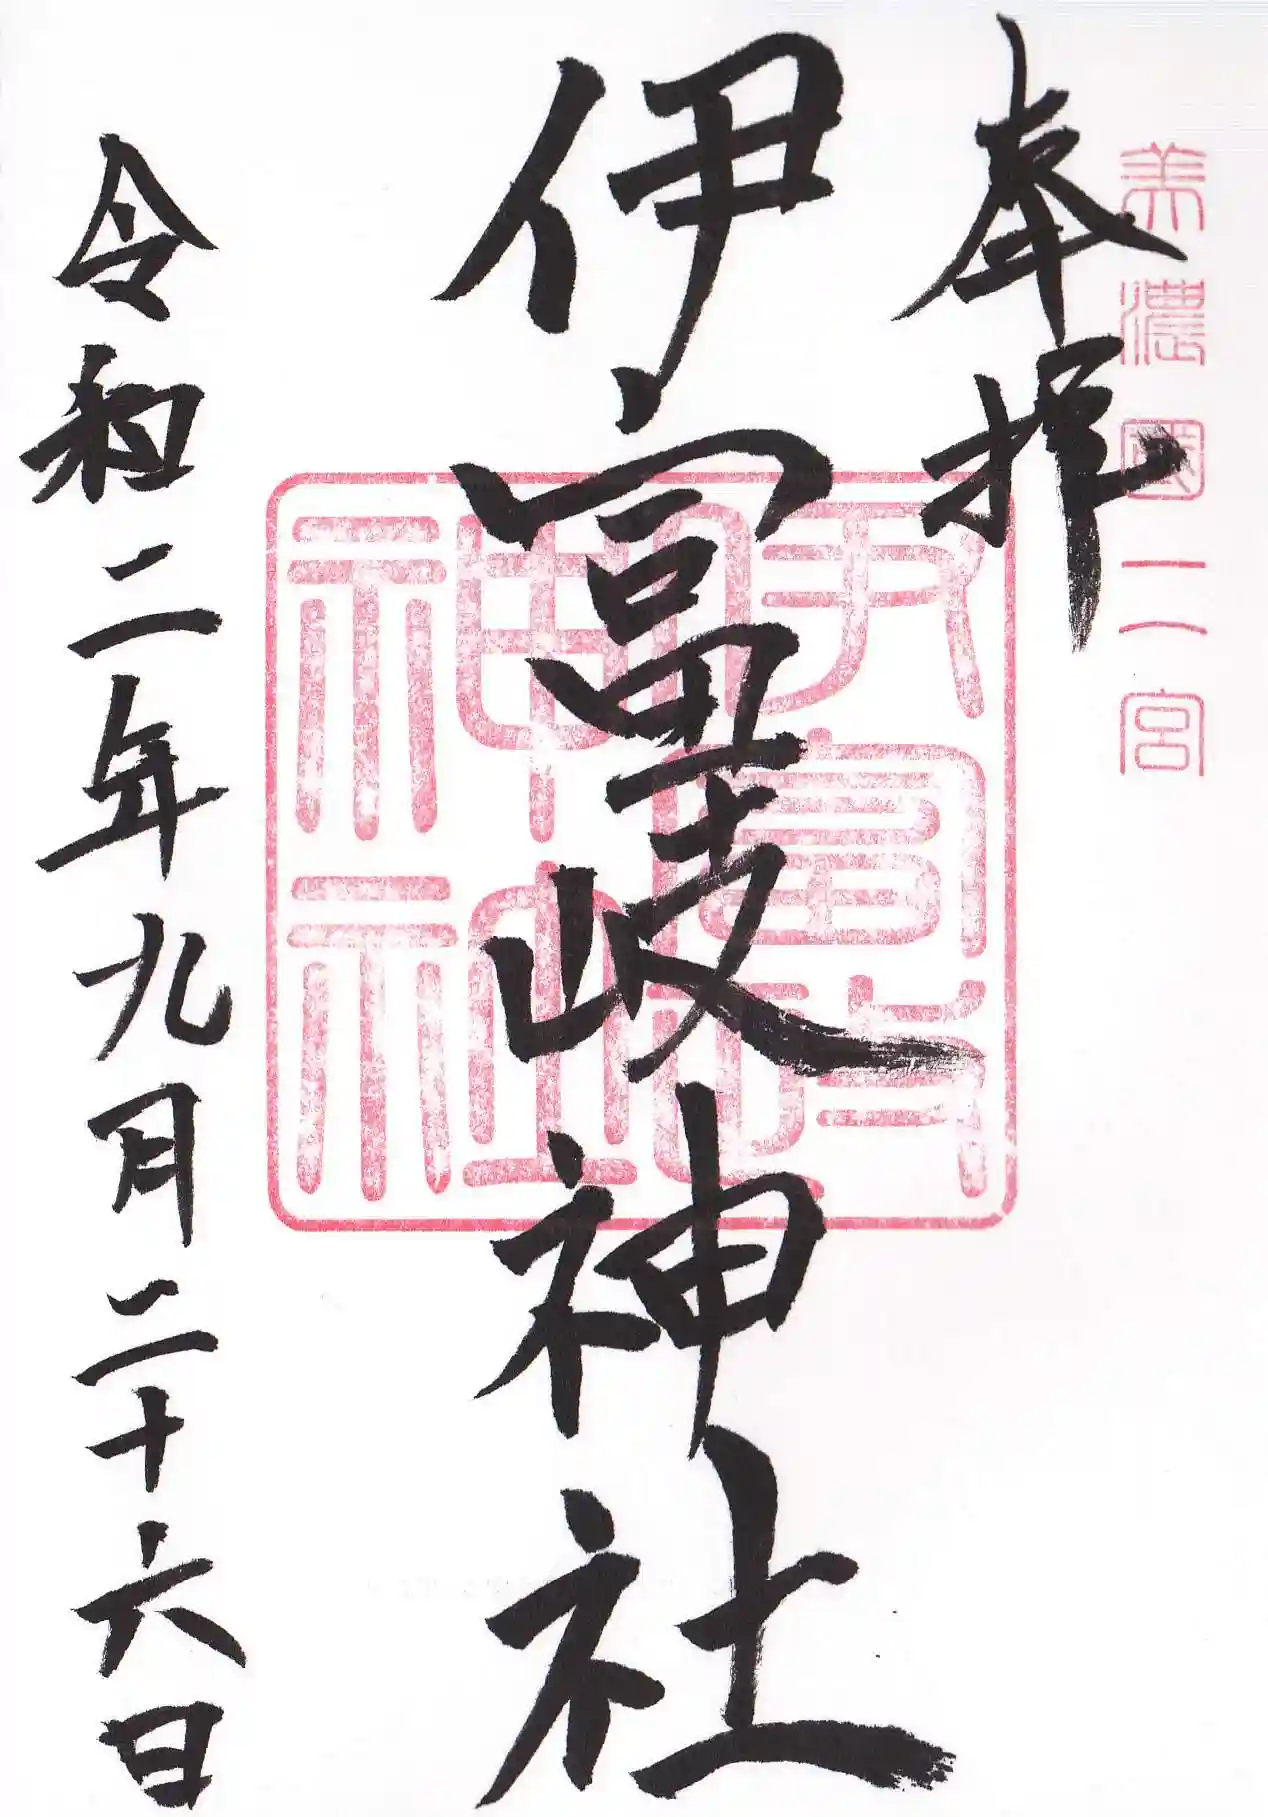 美濃國二宮
奉拝
伊富岐神社
伊富岐神社
令和二年九月二十六日